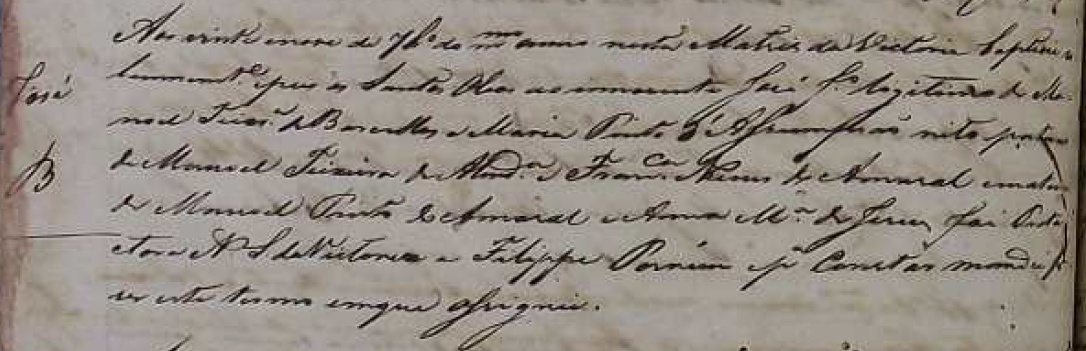 José
B
Aos vinte e nove de 7bro do mmo anno nesta Matriz da Victoria baptizei so
lemnemte e puz os Santos Oleos ao innocente José fo legitimo de Ma-
noel Teixa de Barcellos e Maria Pinta d'Assumpção neto paterno
de Manoel Teixeira de Mendça e Franca Nunes do Amaral e materno
de Manoel Pinto do Amaral e Anna Ma de Jesus, foi Prote
ctora N S da Victoria e Filippe Pereira e pa constar mandei fa
zer este termo em que assignei.